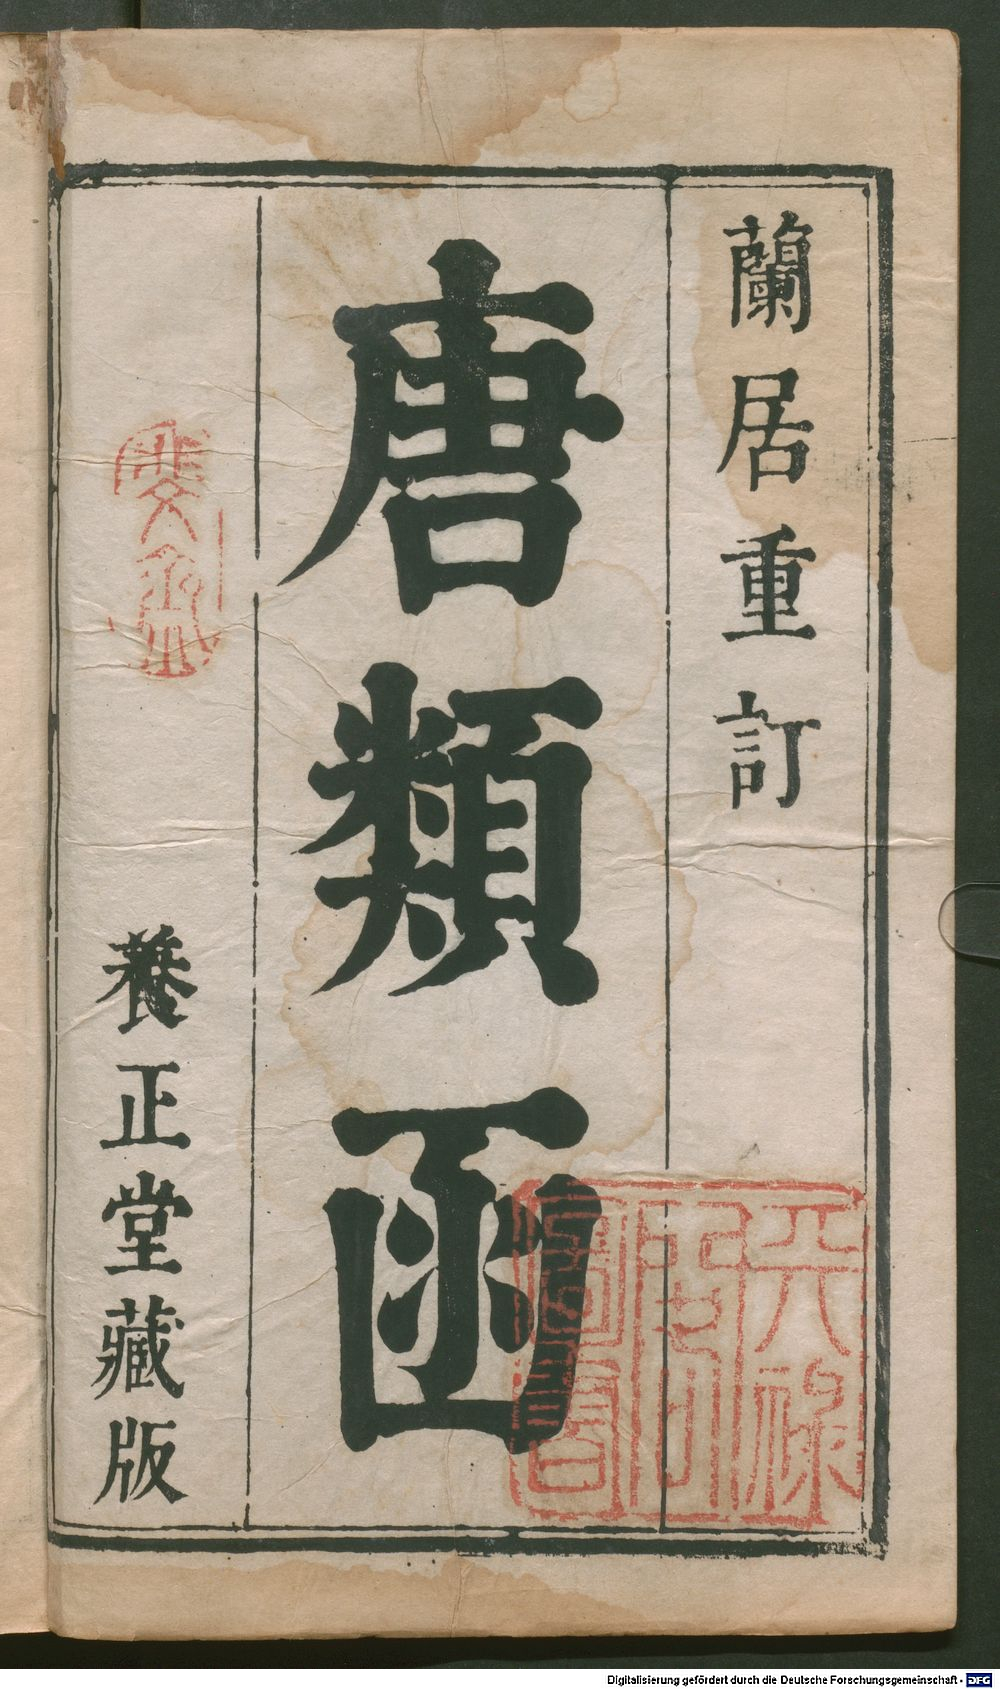 蘭居重訂
唐類函
養正堂藏版
Digitalisierung gefördert durch die Deutsche Forschungsgemeinschaft - DFG